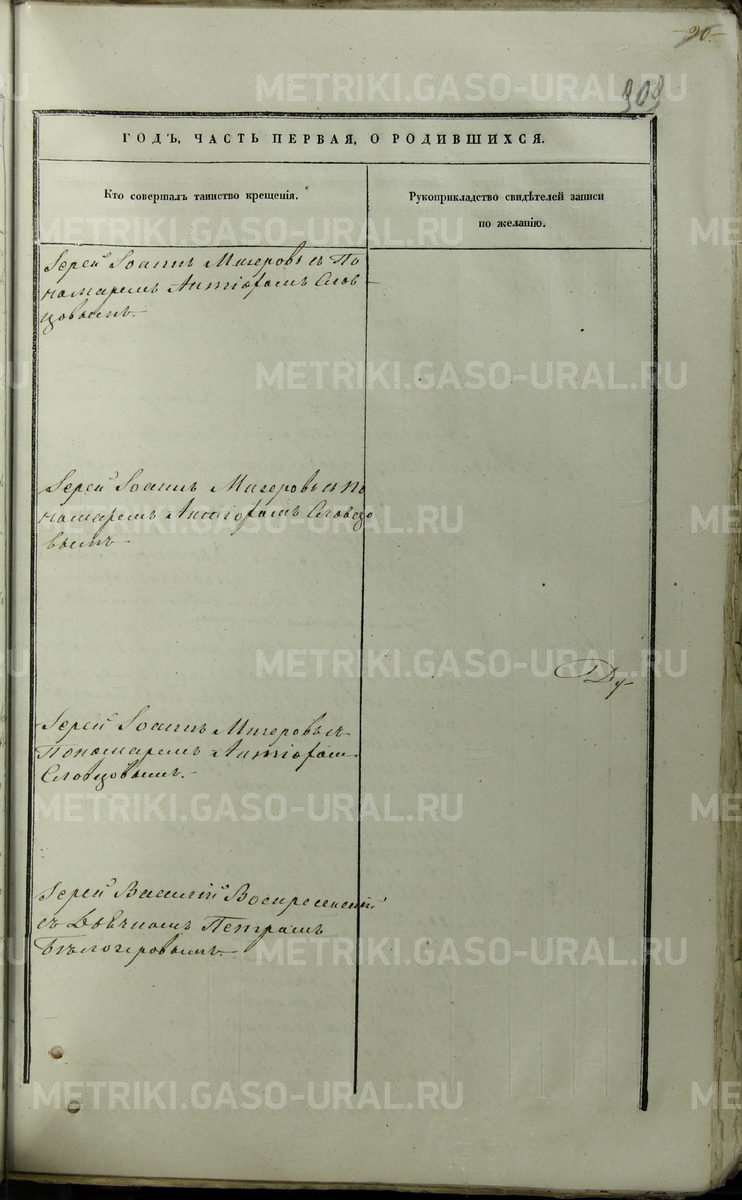 20.
303
METRIKI.GASO-URAL.RU
ГОДЪ, ЧАСТЬ ПЕРВАЯ, О РОДИВШИХСЯ.
Кто совершалъ таинство крещенія.
Рукоприкладство свидѣтелей записи
по желанію.
Іерей Іоаннъ Мигеровъ съ По
номаремъ Антіофомъ Слов-
цовымъ.-
Іерей Іоаннъ Мигеровъ съ По
номаремъ Антіофомъ Словцо
вымъ
Іерей Іоаннъ Мигеровъ съ
Пономаремъ Антіофом
Словцовымъ.-
Іерей Василій Воскресенскій
съ Дьячкомъ Петромъ